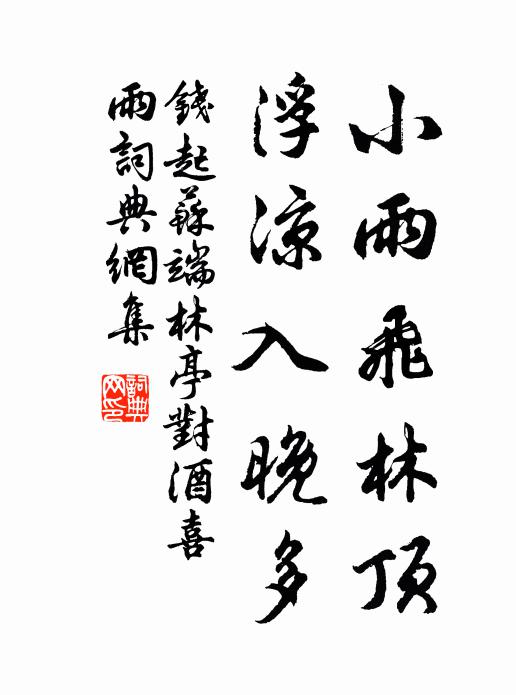 小雨飛林頂
浮涼入晚多
錢起蘇端林亭對酒喜
雨詞典網集
詞典网印